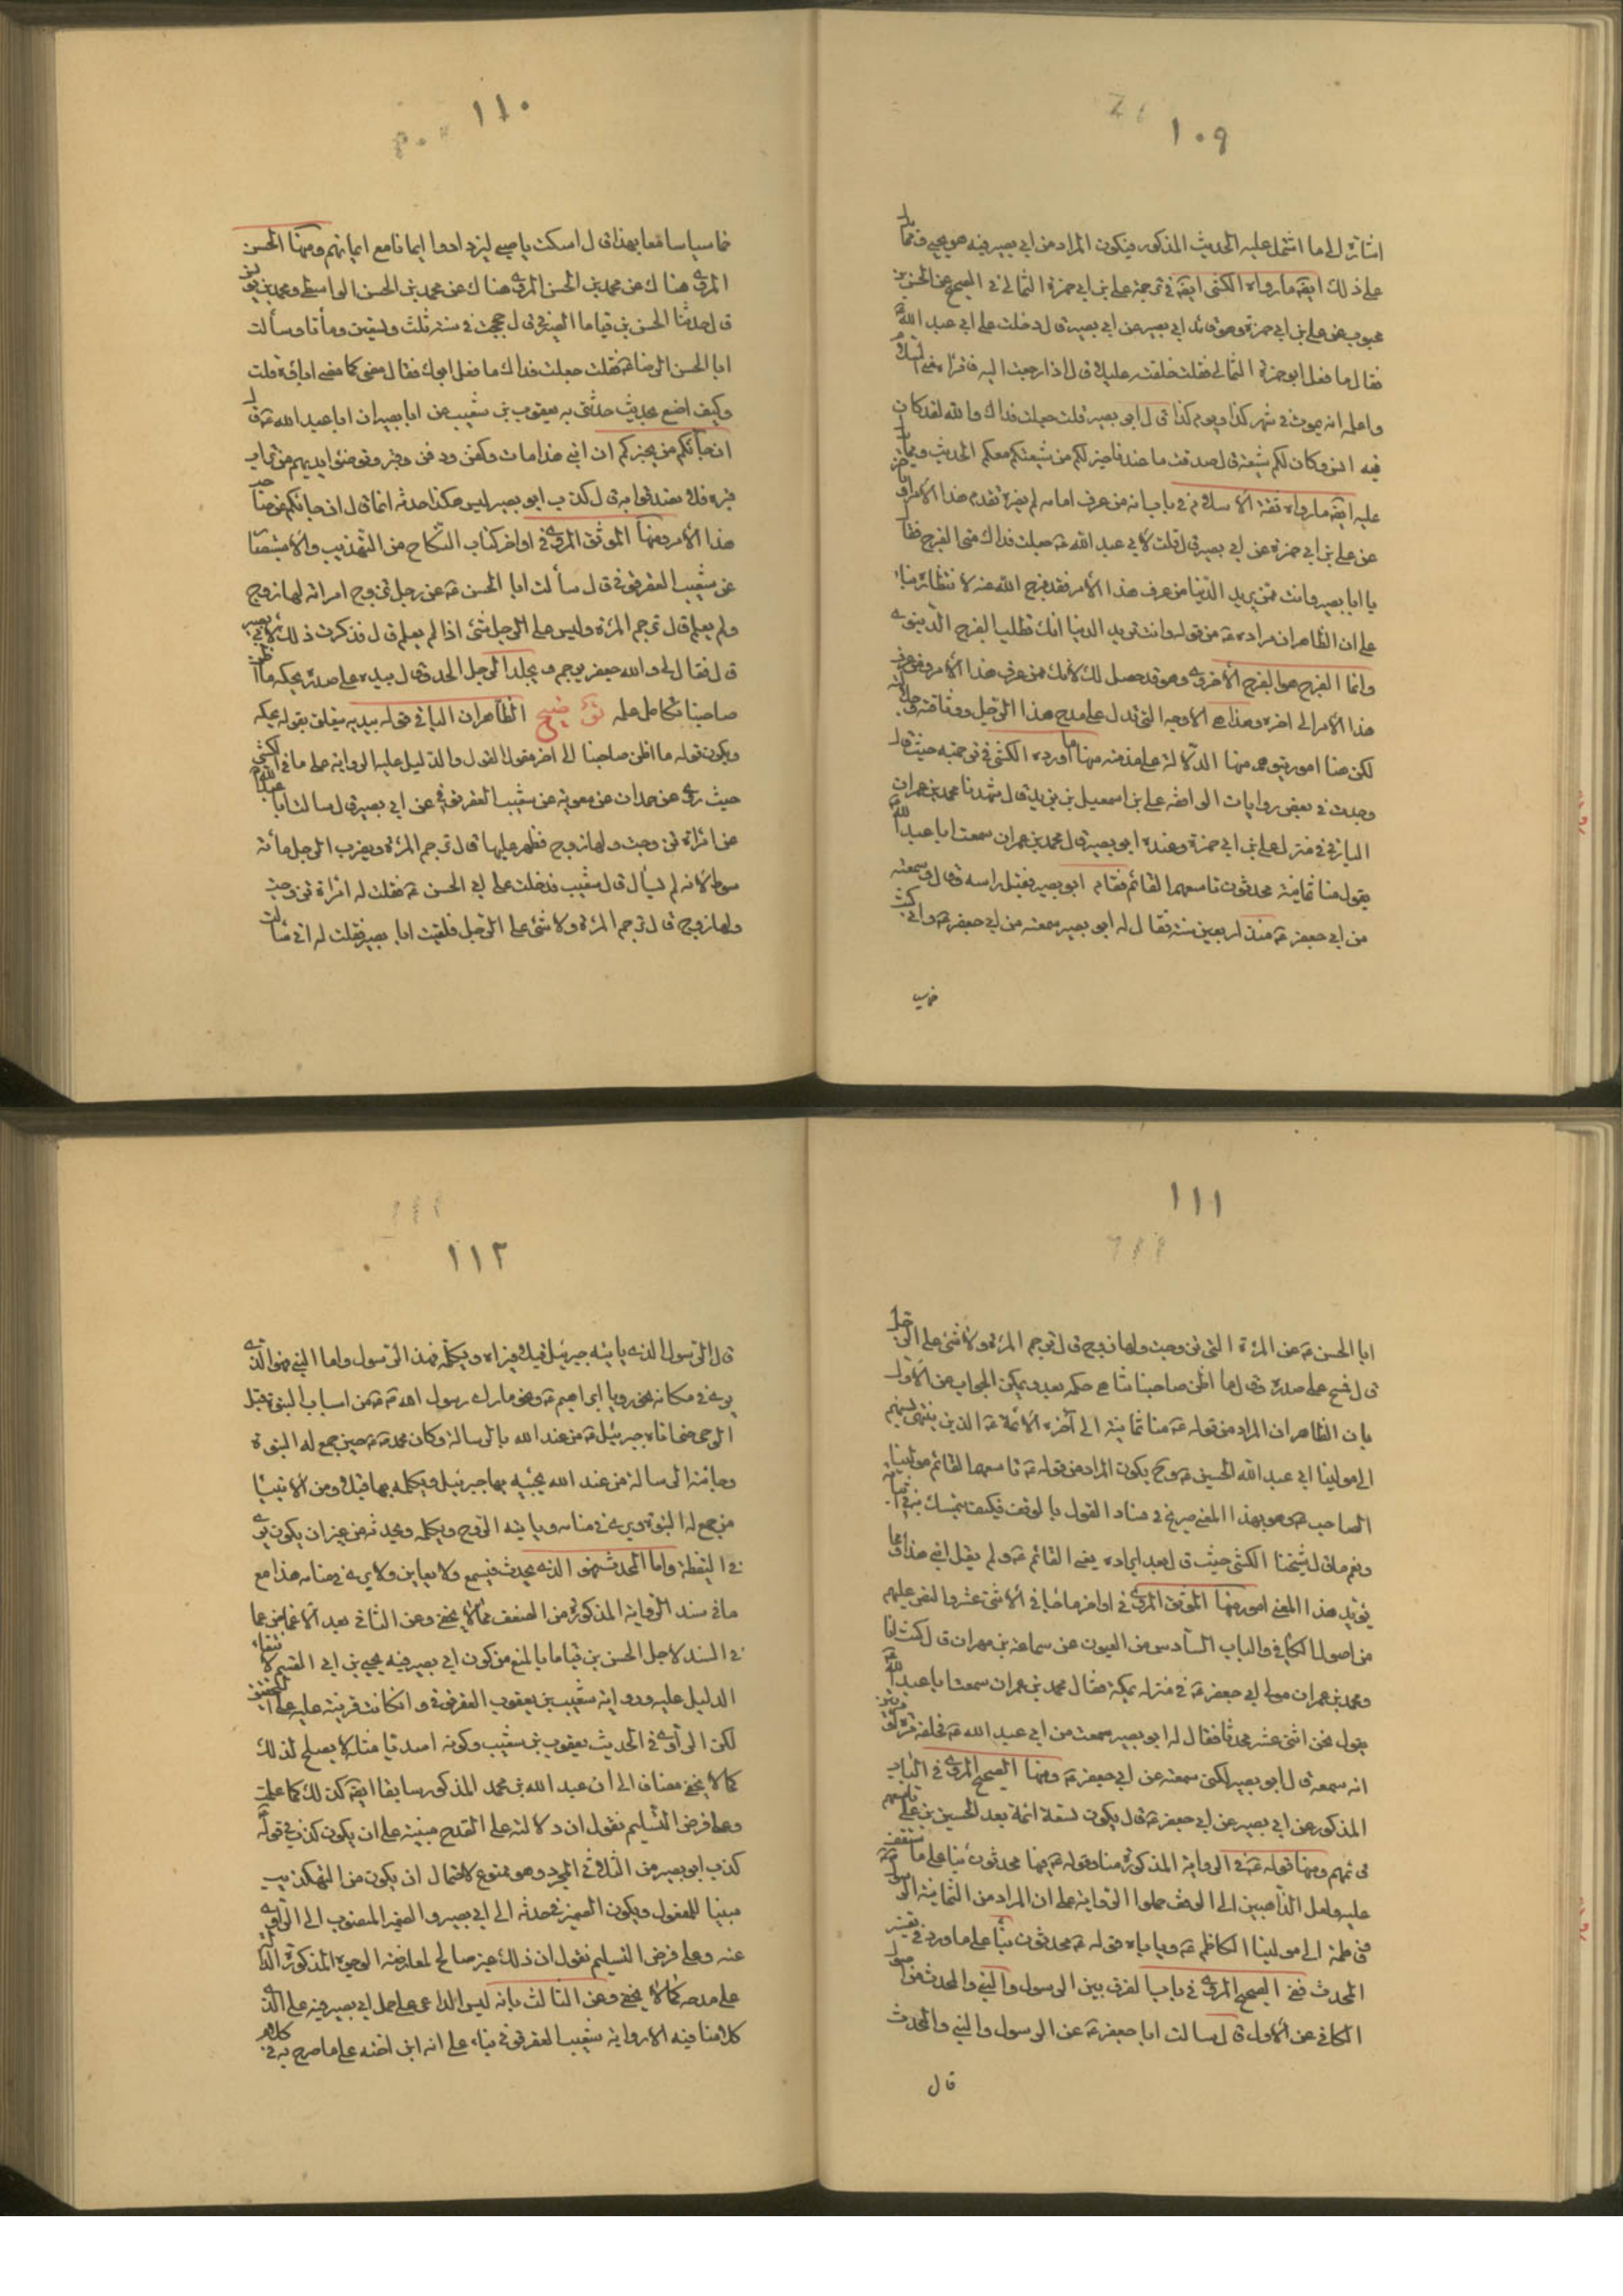 ١٠٩
اشارة الى ما اشتمل عليه الحديث المذكور فيكون المراد من ابي بصير فيه هو يحيى ومما يدل
على ذلك ايضه ما رواه الكشي ايضه في ترجمة علي بن ابي حمزة الثمالي في الصحيح عن الحسن بن
محبوب عن علي بن ابي حمزة وهو قائد ابي بصير عن ابي بصير قال دخلت على ابي عبد الله ع
فقال ما فعل ابو حمزة الثمالي فقلت خلفته عليلا قال اذا رجعت اليه فاقراه مني السلام
واعلمه انه يموت في شهر كذا ويوم كذا قال ابو بصير قلت جعلت فداك والله لقد كان
فيه انس وكان لكم شيعة قال صدقت ما عندنا خير لكم من شيعتكم معكم الحديث ومما يدل
عليه ايضه ما رواه ثقة الاسلام في باب انه من عرف امامه لم يضره تقدم هذا الامر او تاخر
عن علي بن ابي حمزة عن ابي بصير قال قلت لابي عبد الله ع جعلت فداك متى الفرج فقال
يا ابا بصير وانت ممن يريد الدنيا من عرف هذا الامر فقد فرج الله عنه لانتظاره بناء
على ان الظاهر ان مراده ع من قوله وانت تريد الدنيا انك تطلب الفرج الدنيوي
وانما الفرج هو الفرج الاخروي وهو قد حصل لك لانك ممن عرف هذا الامر ومن عرف
هذا الامر الى اخره وهذا هي الاوجه التي تدل على مدح هذا الرجل ووثاقته وجلالته
لكن هنا امور يتوهم منها الدلالة على مذمته منها ما اورده الكشي في ترجمته حيث قال
وجدت في بعض روايات الواقفة علي بن اسمعيل بن يزيد قال شهدنا محمد بن عمران
البارقي في منزل علي بن ابي حمزة وعنده ابو بصير قال محمد بن عمران سمعت ابا عبد الله ع
يقول منا ثمانية محدثون تاسعهم القائم فقام ابو بصير فقبل راسه وقال وسمعته
من ابي جعفر ع منذ اربعين سنة فقال له ابو بصير سمعته من ابي جعفر ع واني كنت
خماسيا
١١٠
خماسيا سامعا بهذا قال اسكت يا صبي ليزدادوا ايمانا مع ايمانهم ومنها الحسن
المروي هناك عن محمد بن الحسن المروي هناك عن محمد بن الحسن الواسطي ومحمد بن يونس
قال حدثنا الحسن بن قياما الصيرفي قال حججت في سنة ثلث وتسعين ومأة وسألت
ابا الحسن الرضا ع فقلت جعلت فداك ما فعل ابوك فقال مضى كما مضى اباؤه قلت
وكيف اصنع بحديث حدثني به يعقوب بن شعيب عن ابا بصير ان ابا عبد الله ع قال
ان جائكم من يخبركم ان ابني هذا مات وكفن ودفن وقبر ونفضوا ايديهم من تراب
قبره فلا تصدقوا به قال كذب ابو بصير ليس هكذا حدثه انما قال ان جائكم عن صاحب
هذا الامر ومنها الموثق المروي في اواخر كتاب النكاح من التهذيب والاستبصار
عن شعيب العقرقوفي قال سألت ابا الحسن ع عن رجل تزوج امراته لها زوج
ولم يعلم قال ترجم المرئة وليس على الرجل شئ اذا لم يعلم قال فذكرت ذلك لابي بصير
قال فقال لي والله جعفر يرجم ويجلد الرجل الحد وقال بيده على صدره يحكه ما اظن
صاحبنا تكامل علمه توضيح الظاهر ان الباء في قوله بيديه يتعلق بقوله يحكه
ويكون قوله ما اظن صاحبنا الى اخر مقول القول والدليل عليه الرواية على ما في الكشي
حيث روى عن حمدان عن معوية عن شعيب العقرقوفي عن ابي بصير قال سالت ابا عبد الله ع
عن امراة تزوجت ولها زوج فظهر عليها قال ترجم المرئة ويضرب الرجل مأئة
سوط لانه لم يسأل قال شعيب فدخلت على ابي الحسن ع فقلت له امراة تزوجت
ولها زوج قال ترجم المرئة ولا شئ على الرجل فلقيت ابا بصير فقلت له اني سألت
١١١
ابا الحسن ع عن المرئة التي تزوجت ولها زوج قال ترجم المرئة ولا شئ على الرجل
قال فمسح على صدره وقال ما اظن صاحبنا تناهى حكمه بعد ويمكن الجواب عن الاول
بان الظاهر ان المراد من قوله ع منا ثمانية الى آخره الائمة ع الذين ينتهي نسبهم
الى مولينا ابي عبد الله الحسين ع وح يكون المراد من قوله ع تاسعهم القائم مولينا
الصاحب ع وهو بهذا المعنى صريح في فساد القول بالوقف فكيف يتمسك به في اثباته
ونعم ما قال شيخنا الكشي حيث قال بعد ايراده يعني القائم ع ولم يقل ابني هذا ومما
يؤيد هذا المعنى امور منها الموثق المروي في اواخر ما جاء في الاثني عشر والنص عليهم
من اصول الكافي والباب السادس من العيون عن سماعة بن مهران قال كنت انا
ومحمد بن عمران مولى ابي جعفر ع في منزله بمكة فقال محمد بن عمران سمعت ابا عبد الله ع
يقول نحن اثني عشر محدثا فقال له ابو بصير سمعت من ابي عبد الله ع فحلفه مرة او مرتين
انه سمعه قال ابو بصير لكني سمعته عن ابي جعفر ع ومنها الصحيح المروي في الباب
المذكور عن ابي بصير عن ابي جعفر ع قال يكون تسعة ائمة بعد الحسين بن علي تاسعهم
قائمهم ومنها قوله ع في الرواية المذكورة منا وقوله ع فيها محدثون بناء على ما ستقف
عليه ولعل الذاهبين الى الوقف حملوا الرواية على ان المراد من الثمانية الرسول ص
وفاطمة الى مولينا الكاظم ع وياباه قوله ع محدثون بناء على ما ورد في تفسير
المحدث ففي الصحيح المروي في باب الفرق بين الرسول والنبي والمحدث من اصول
الكافي عن الاول قال سالت ابا جعفر ع عن الرسول والنبي والمحدث
قال
١١٢
قال الرسول الذي ياتيه جبرئيل قبلا فيراه ويكلمه فهذا الرسول واما النبي فهو الذي
يرى في منامه نحو رويا ابراهيم ع ونحو ما راى رسول الله ص من اسباب النبوة قبل
الوحي حتى اتاه جبرئيل ع من عند الله بالرسالة وكان محمد ص حين جمع له النبوة
وجائته الرسالة من عند الله يجيئه بها جبرئيل ويكلمه بها قبلا ومن الانبياء
من جمع له النبوة ويرى في منامه وياتيه الروح ويكلمه ويحدثه من غير ان يكون يرى
في اليقظة واما المحدث فهو الذي يحدث فيسمع ولا يعاين ولا يرى في منامه هذا مع
ما في سند الرواية المذكورة من الضعف كما لا يخفى وعن الثاني بعد الاغماض عما
في السند لاجل الحسن بن قياما بالمنع من كون ابي بصير فيه يحيى بن ابي القسم لانتفاء
الدليل عليه ورواية شعيب بن يعقوب العقرقوفي وان كانت قرينة عليه على التحقيق
لكن الراوي في الحديث يعقوب بن شعيب وكونه اسديا مثله لا يصلح لذلك
كما لا يخفى مضاف الى ان عبد الله بن محمد المذكور سابقا ايضه كذلك كما علمت
وعلى فرض التسليم نقول ان دلالته على القدح مبنية على ان يكون كذب في قوله
كذب ابو بصير من الثلاثي المجرد وهو ممنوع لاحتمال ان يكون من التكذيب
مبنيا للمفعول ويكون الضمير في حدثه الى ابي بصير والضمير المنصوب الى الراوي
عنه وعلى فرض التسليم نقول ان ذلك غير صالح لمعارضة الوجوه المذكورة الدالة
على مدحه كما لا يخفى وعن الثالث بانه ليس الداعي على حمل ابي بصير فيه على الذي
كلامنا فيه الا رواية شعيب العقرقوفي بناء على انه ابن اخته على ما صرح به في كلام